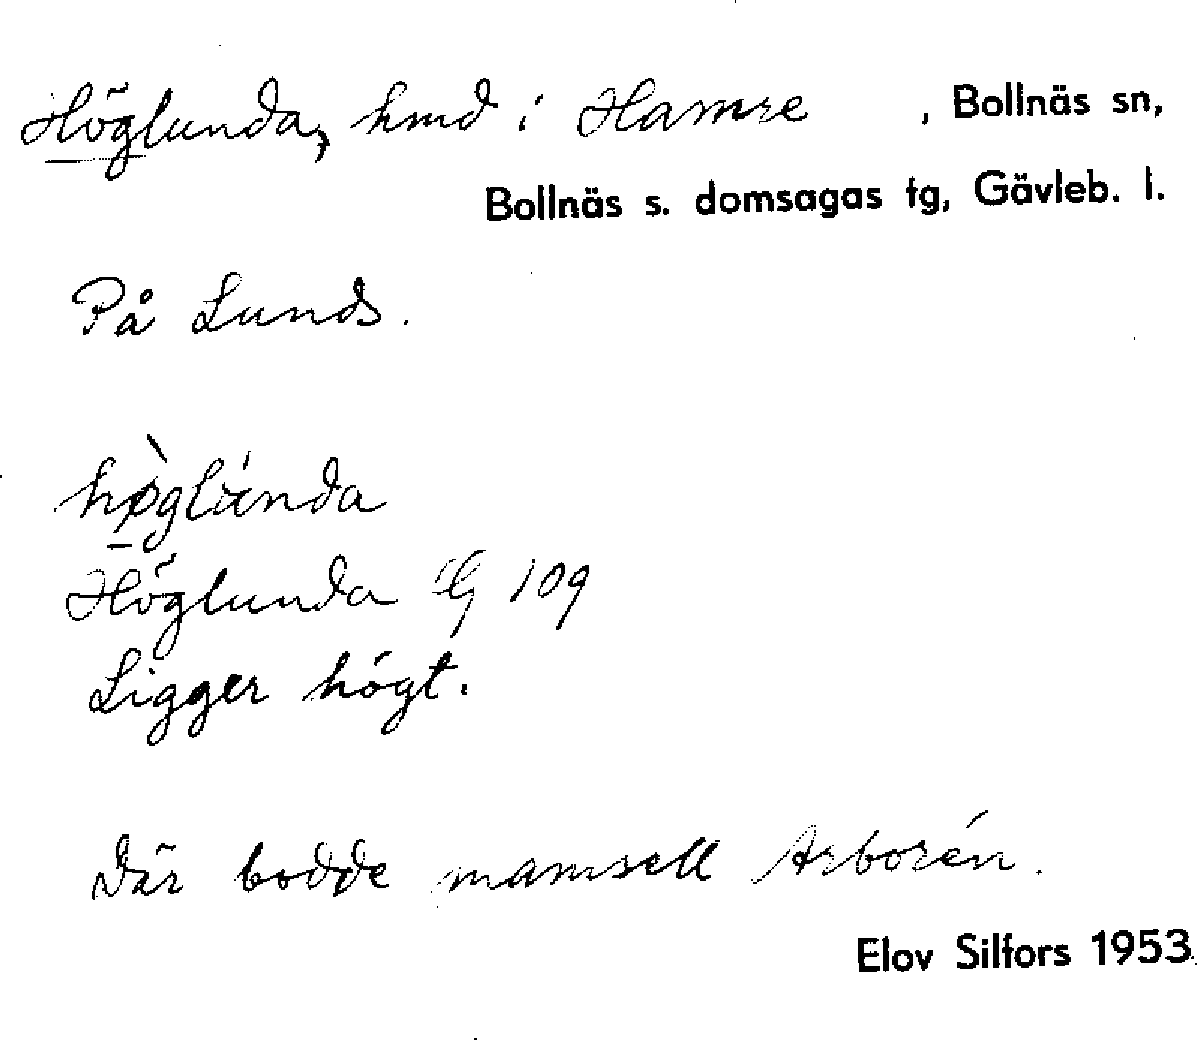 Höglunda, hmd i Hamre , Bollnäs sn,
Bollnäs s. domsagas tg, Gävleb. l.
På Lunds.
hø̀glúnda
Höglunda 109
Ligger högt.
Där bodde mamsell Arborén.
Elov Silfors 1953